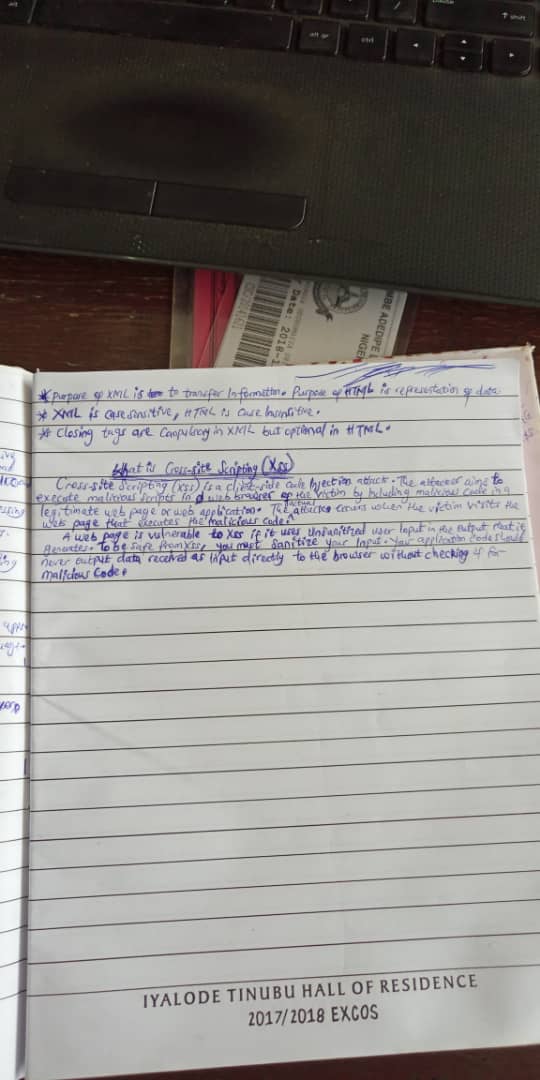 alt
alt gr
ctrl
shift
MBE ADEDIPE
NIGE
Date: 2018-1
* Purpose of XML is to transfer Information. Purpose of HTML is representation of data.
* XML is Case sensitive, HTML is Case Insensitive.
* Closing tags are Compulsory in XML but optional in HTML.
What is Cross-site Scripting (XSS)
Cross-site Scripting (XSS) is a client-side code Injection attack. The attacker aims to
execute malicious scripts in a web browser of the victim by Including malicious code in a
legitimate web page or web application. The actual attack occurs when the victim visits the
web page that executes the malicious code.
A web page is vulnerable to XSS if it uses Unsanitized user Input in the output that it
generates. To be safe from XSS, you must sanitize your Input. Your application code should
never output data received as Input directly to the browser without checking it for
malicious code.
IYALODE TINUBU HALL OF RESIDENCE
2017/2018 EXCOS